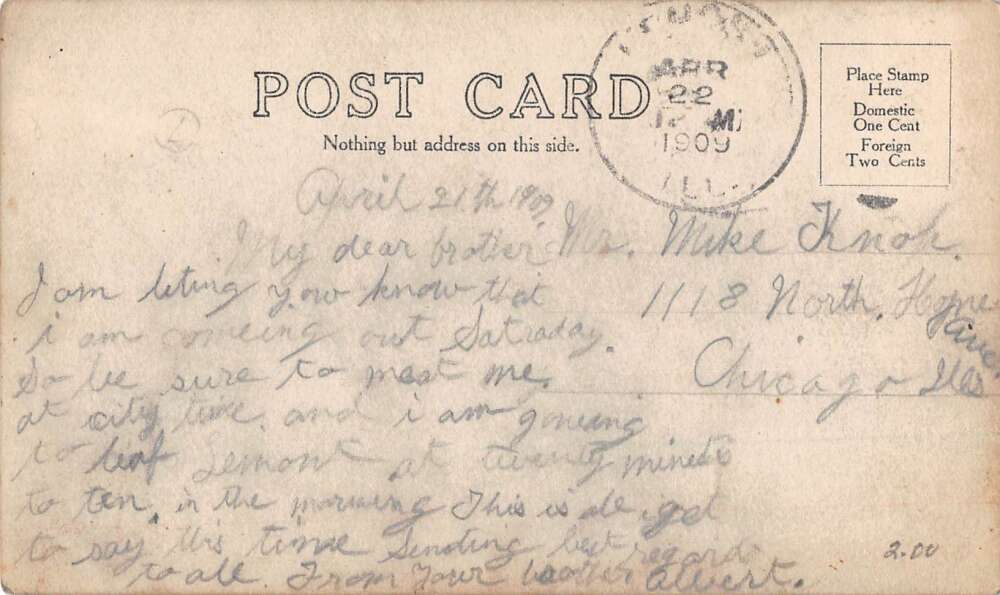 POST CARD
Nothing but address on this side.
Place Stamp
Here
Domestic
One Cent
Foreign
Two Cents
APR
22
1909
ILL.
April 21th 1909
My dear brother
I am leting yow know that
i am comeing out Satraday.
So be sure to meat me.
at city time. and i am goneing
to leaf Lemont at twenty minets
to ten, in the morning This is all i get
to say this time Sending best regards
to all. From Your brother Albert.
Mr. Mike
1118 North. Home
ave.
Chicago Ills
2.00